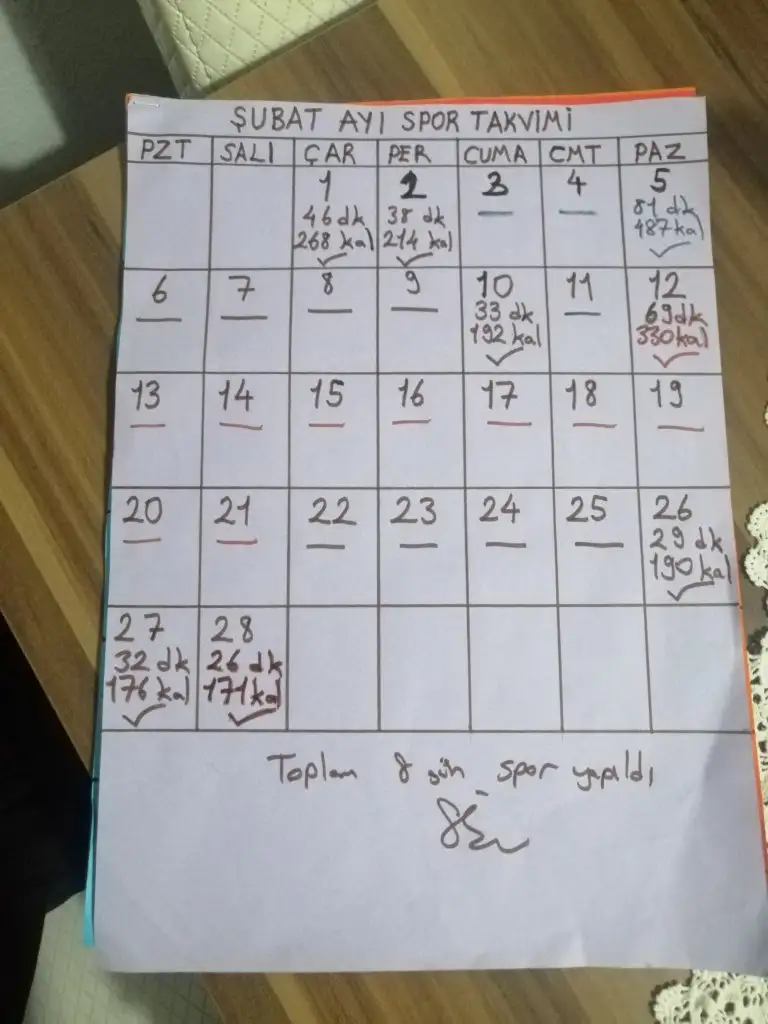 ŞUBAT AYI SPOR TAKVİMİ
PZT SALI ÇAR PER CUMA CMT PAZ
1 2 3 4 5
46 dk 38 dk — — 81 dk
268 kal 214 kal 487 kal
✓ ✓ ✓
6 7 8 9 10 11 12
— — — — 33 dk — 69 dk
192 kal 330 kal
✓ ✓
13 14 15 16 17 18 19
— — — — — — —
20 21 22 23 24 25 26
— — — — — — 29 dk
190 kal
✓
27 28
32 dk 26 dk
176 kal 171 kal
✓ ✓
Toplam 8 gün spor yapıldı